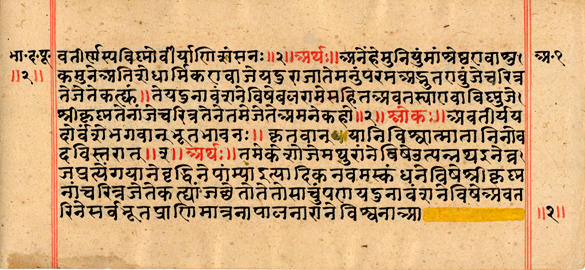 भा॰द॰पू॰ वतीर्णस्यविष्णोर्वीर्याणिशंसनः॥२॥अर्थः॥अनेहेमुनियुंमांश्रेष्ठएवाशु अ॰१
॥२॥ कमुनेअतिशेधार्मिकएवाजेयदुराजातेमनुंपरमअद्भुतएवुंजेचरित्र
तेजेतेकह्युं।तेयदुनावंशनेविषेबलरामेसहितअवतस्याएवाविष्णुजे
श्रीकृष्णतेनांजेचरित्रतेनेतमेजेतेअमनेकहो॥२॥श्लोकः॥अवतीर्यय
दोर्वंशेभगवान्भूतभावनः॥कृतवान्यानिविश्वात्मातानिनोव
दविस्तरात्॥३॥अर्थः॥तमेकेशोजेमथुरांनेविषेउत्पन्नथइनेव्र
जप्रत्येंगयानेवृद्धिनेपाम्याइत्यादिकनवमस्कंधनेविषेश्रीकृष्ण
नांचरित्रजेतेकह्यांजछेतोतेतोसाचुंपणयदुनावंशनेविषेअवत
रिनेसर्वभूतप्राणिमात्रनापालनारानेविश्वनाआ ॥२॥